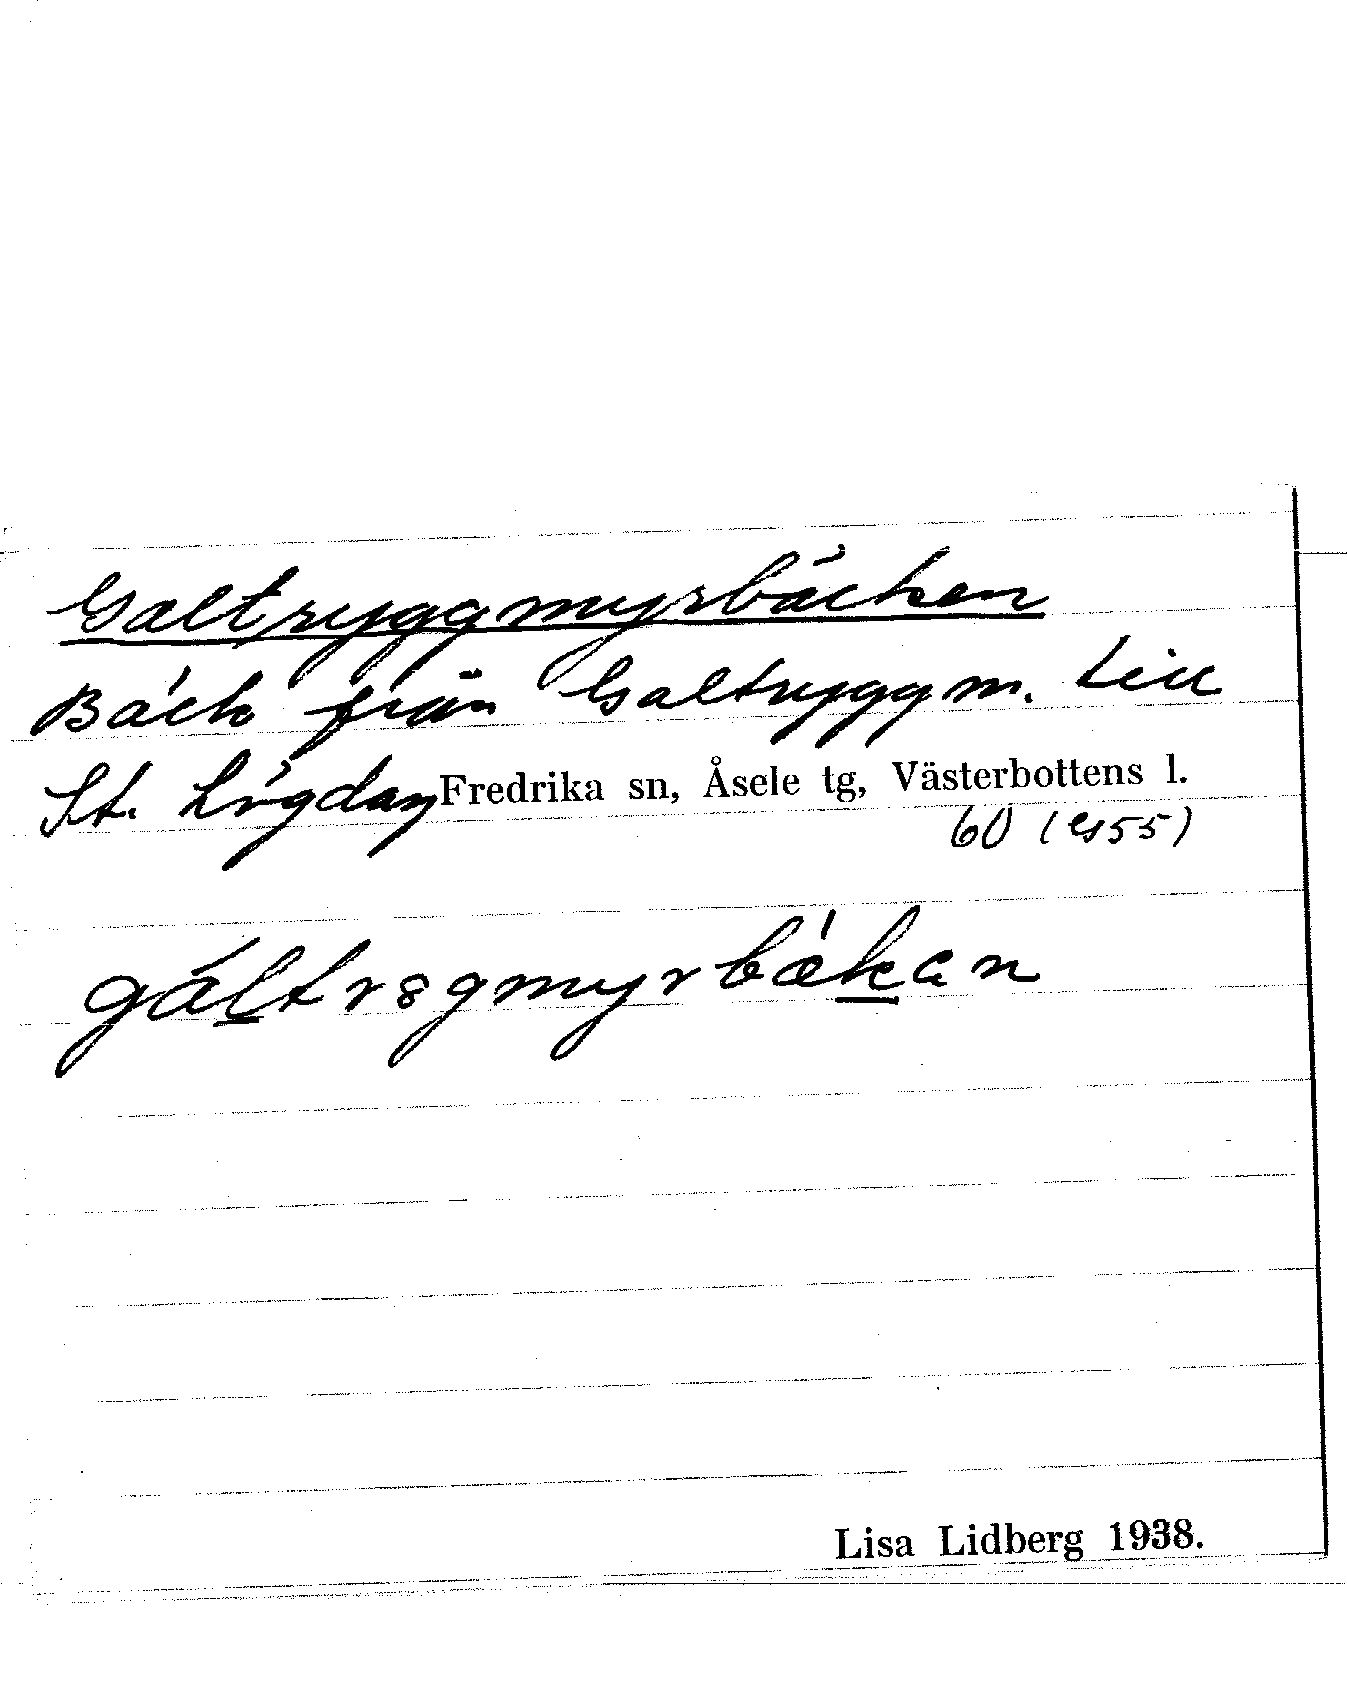 Galtryggmyrbäcken
Bäck från Galtryggm. till
St. Lögdan Fredrika sn, Åsele tg, Västerbottens l.
60 (G55)
gáltrşgmyrbǽkan
Lisa Lidberg 1938.